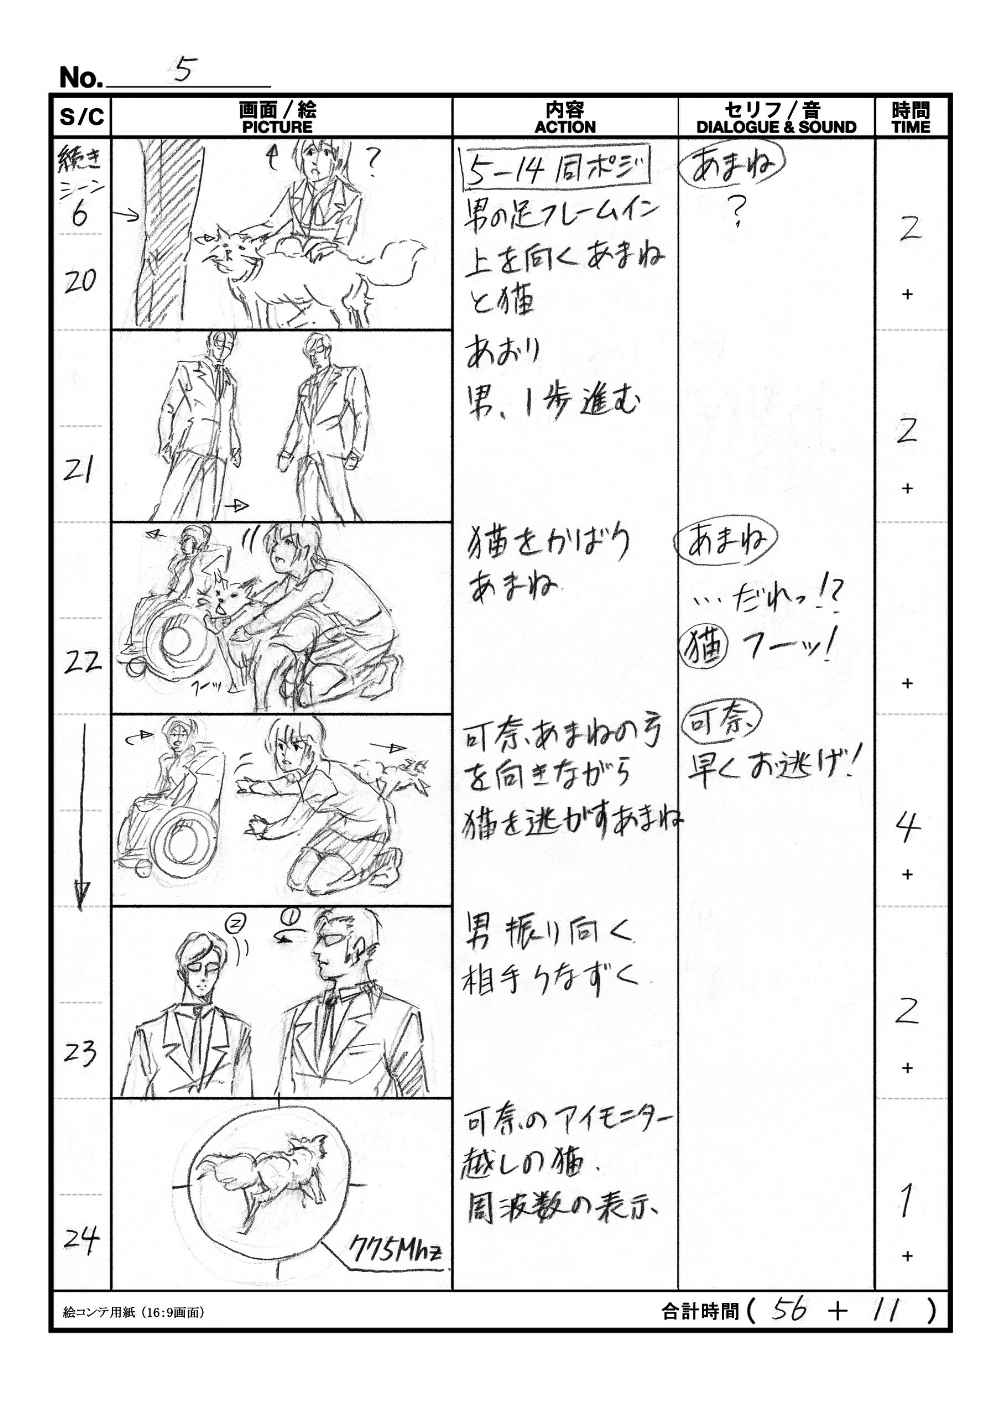 No. 5
S/C
画面/絵
PICTURE
内容
ACTION
セリフ/音
DIALOGUE & SOUND
時間
TIME
続き
シーン
6
20
?
5-14 同ポジ
男の足フレームイン
上を向くあまね
と猫
あまね
?
2
+
21
あおり
男、1歩進む
2
+
22
フーッ
猫をかばう
あまね
あまね
…だれっ!?
猫 フーッ!
+
可奈、あまねの方
を向きながら
猫を逃がすあまね
可奈
早くお逃げ!
4
+
23
②
①
男振り向く
相手うなずく
2
+
24
775Mhz
可奈のアイモニター
越しの猫
周波数の表示
1
+
絵コンテ用紙(16:9画面)
合計時間( 56 + 11 )